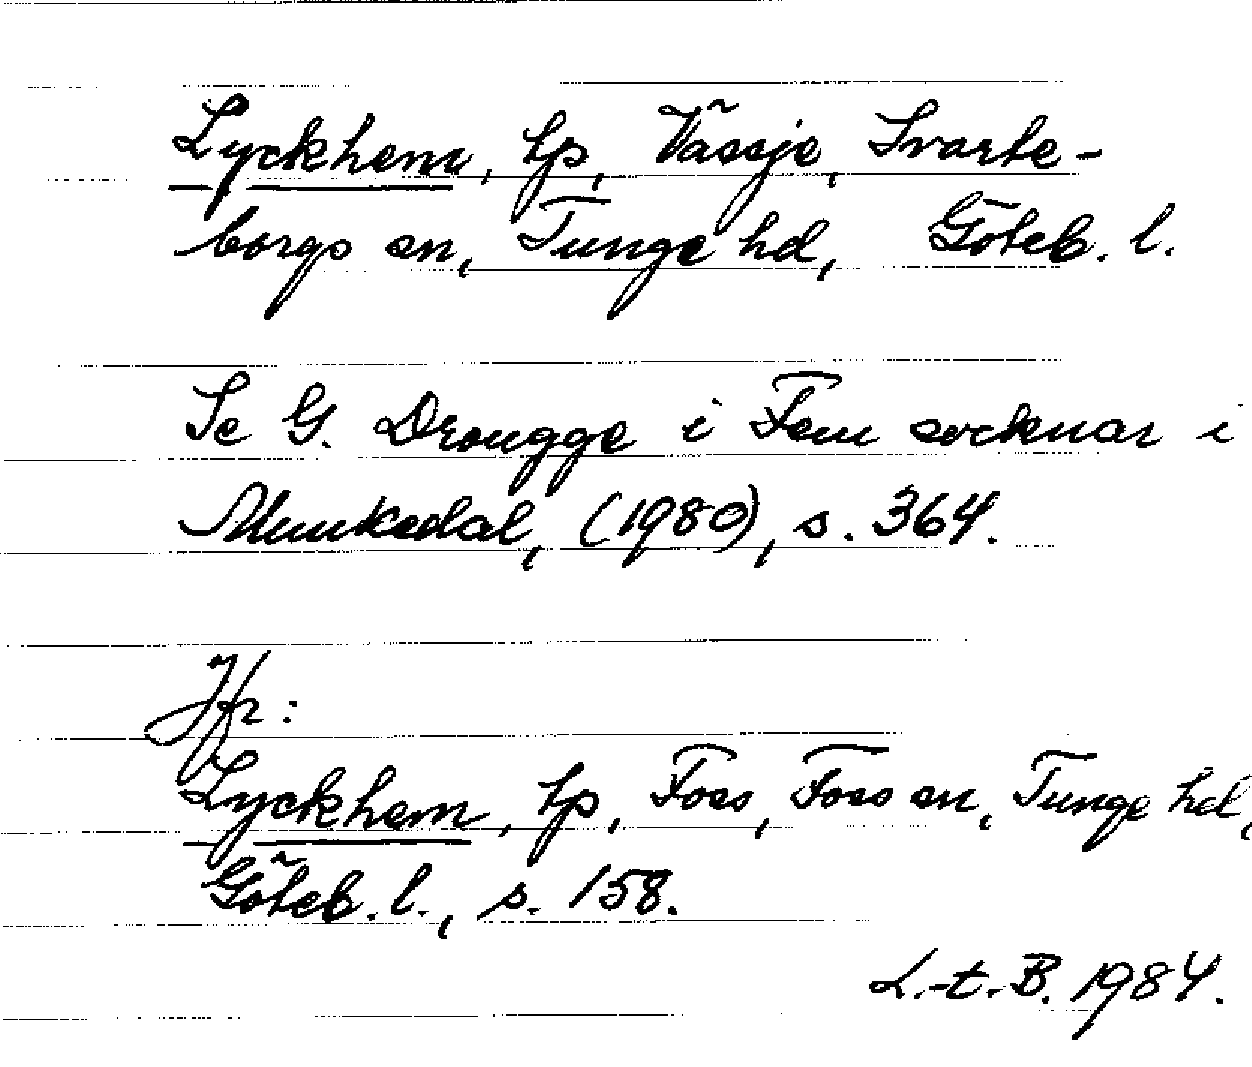 Lyckhem, lp, Vässje, Svarte-
borgs sn, Tunge hd, Göteb. l.
Se G. Drougge i Fem socknar i
Munkedal, (1980), s. 364.
Jfr:
Lyckhem, lp, Foss, Foss sn, Tunge hd,
Göteb. l., s. 158.
L.-t. B. 1984.